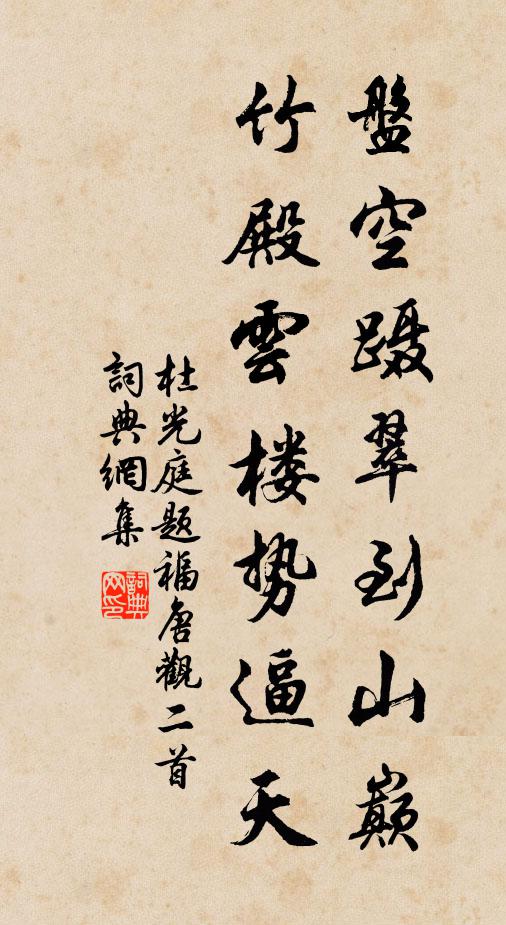 盤空蹑翠到山巔
竹殿雲楼势逼天
杜光庭题福唐觀二首
詞典網集
詞典网印